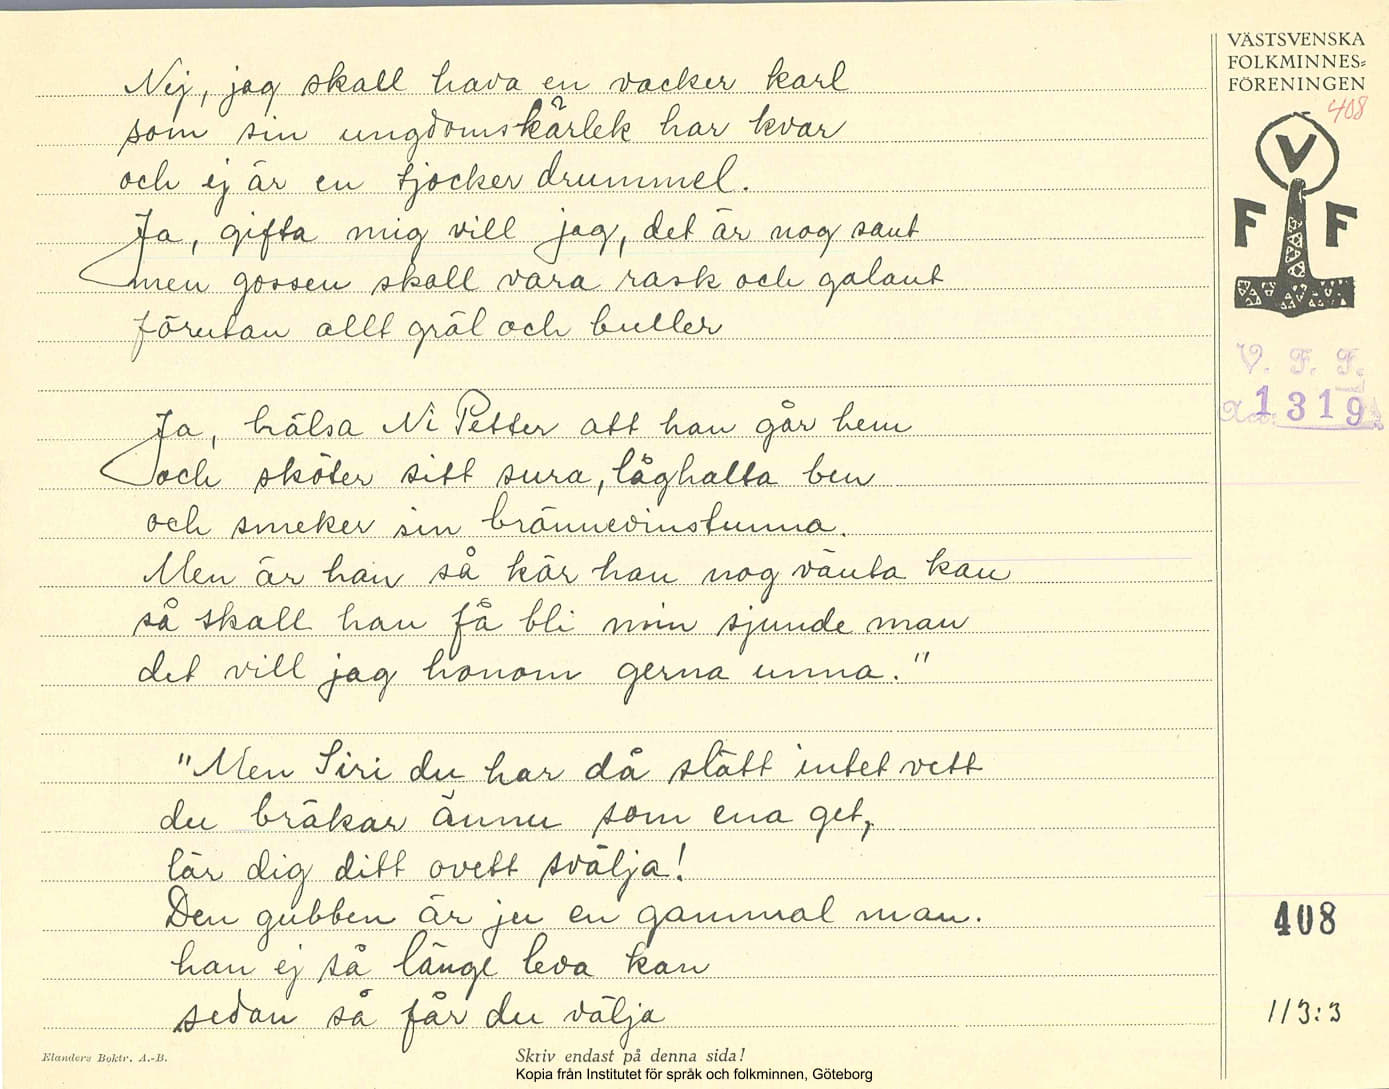 Nej, jag skall hava en vacker karl
som sin ungdomskärlek har kvar
och ej är en tjocker drummel.
Ja, gifta mig vill jag, det är nog sant
men gossen skall vara rask och galant
förutan allt gräl och buller
Ja, hälsa Ni Petter att han går hem
och sköter sitt sura, låghalta ben
och smeker sin brännevinstunna.
Men är han så kär han nog vänta kan
så skall han få bli min sjunde man
det vill jag honom gerna unna."
"Men Siri du har då slätt intet vett
du bräkar ännu som ena get,
lär dig ditt ovett svälja!
Den gubben är ju en gammal man.
han ej så länge leva kan
sedan så får du välja
Elanders Boktr. A.-B.
Skriv endast på denna sida!
Kopia från Institutet för språk och folkminnen, Göteborg
VÄSTSVENSKA
FOLKMINNES-
FÖRENINGEN
408
V
F F
V. F. F.
1319
408
113:3